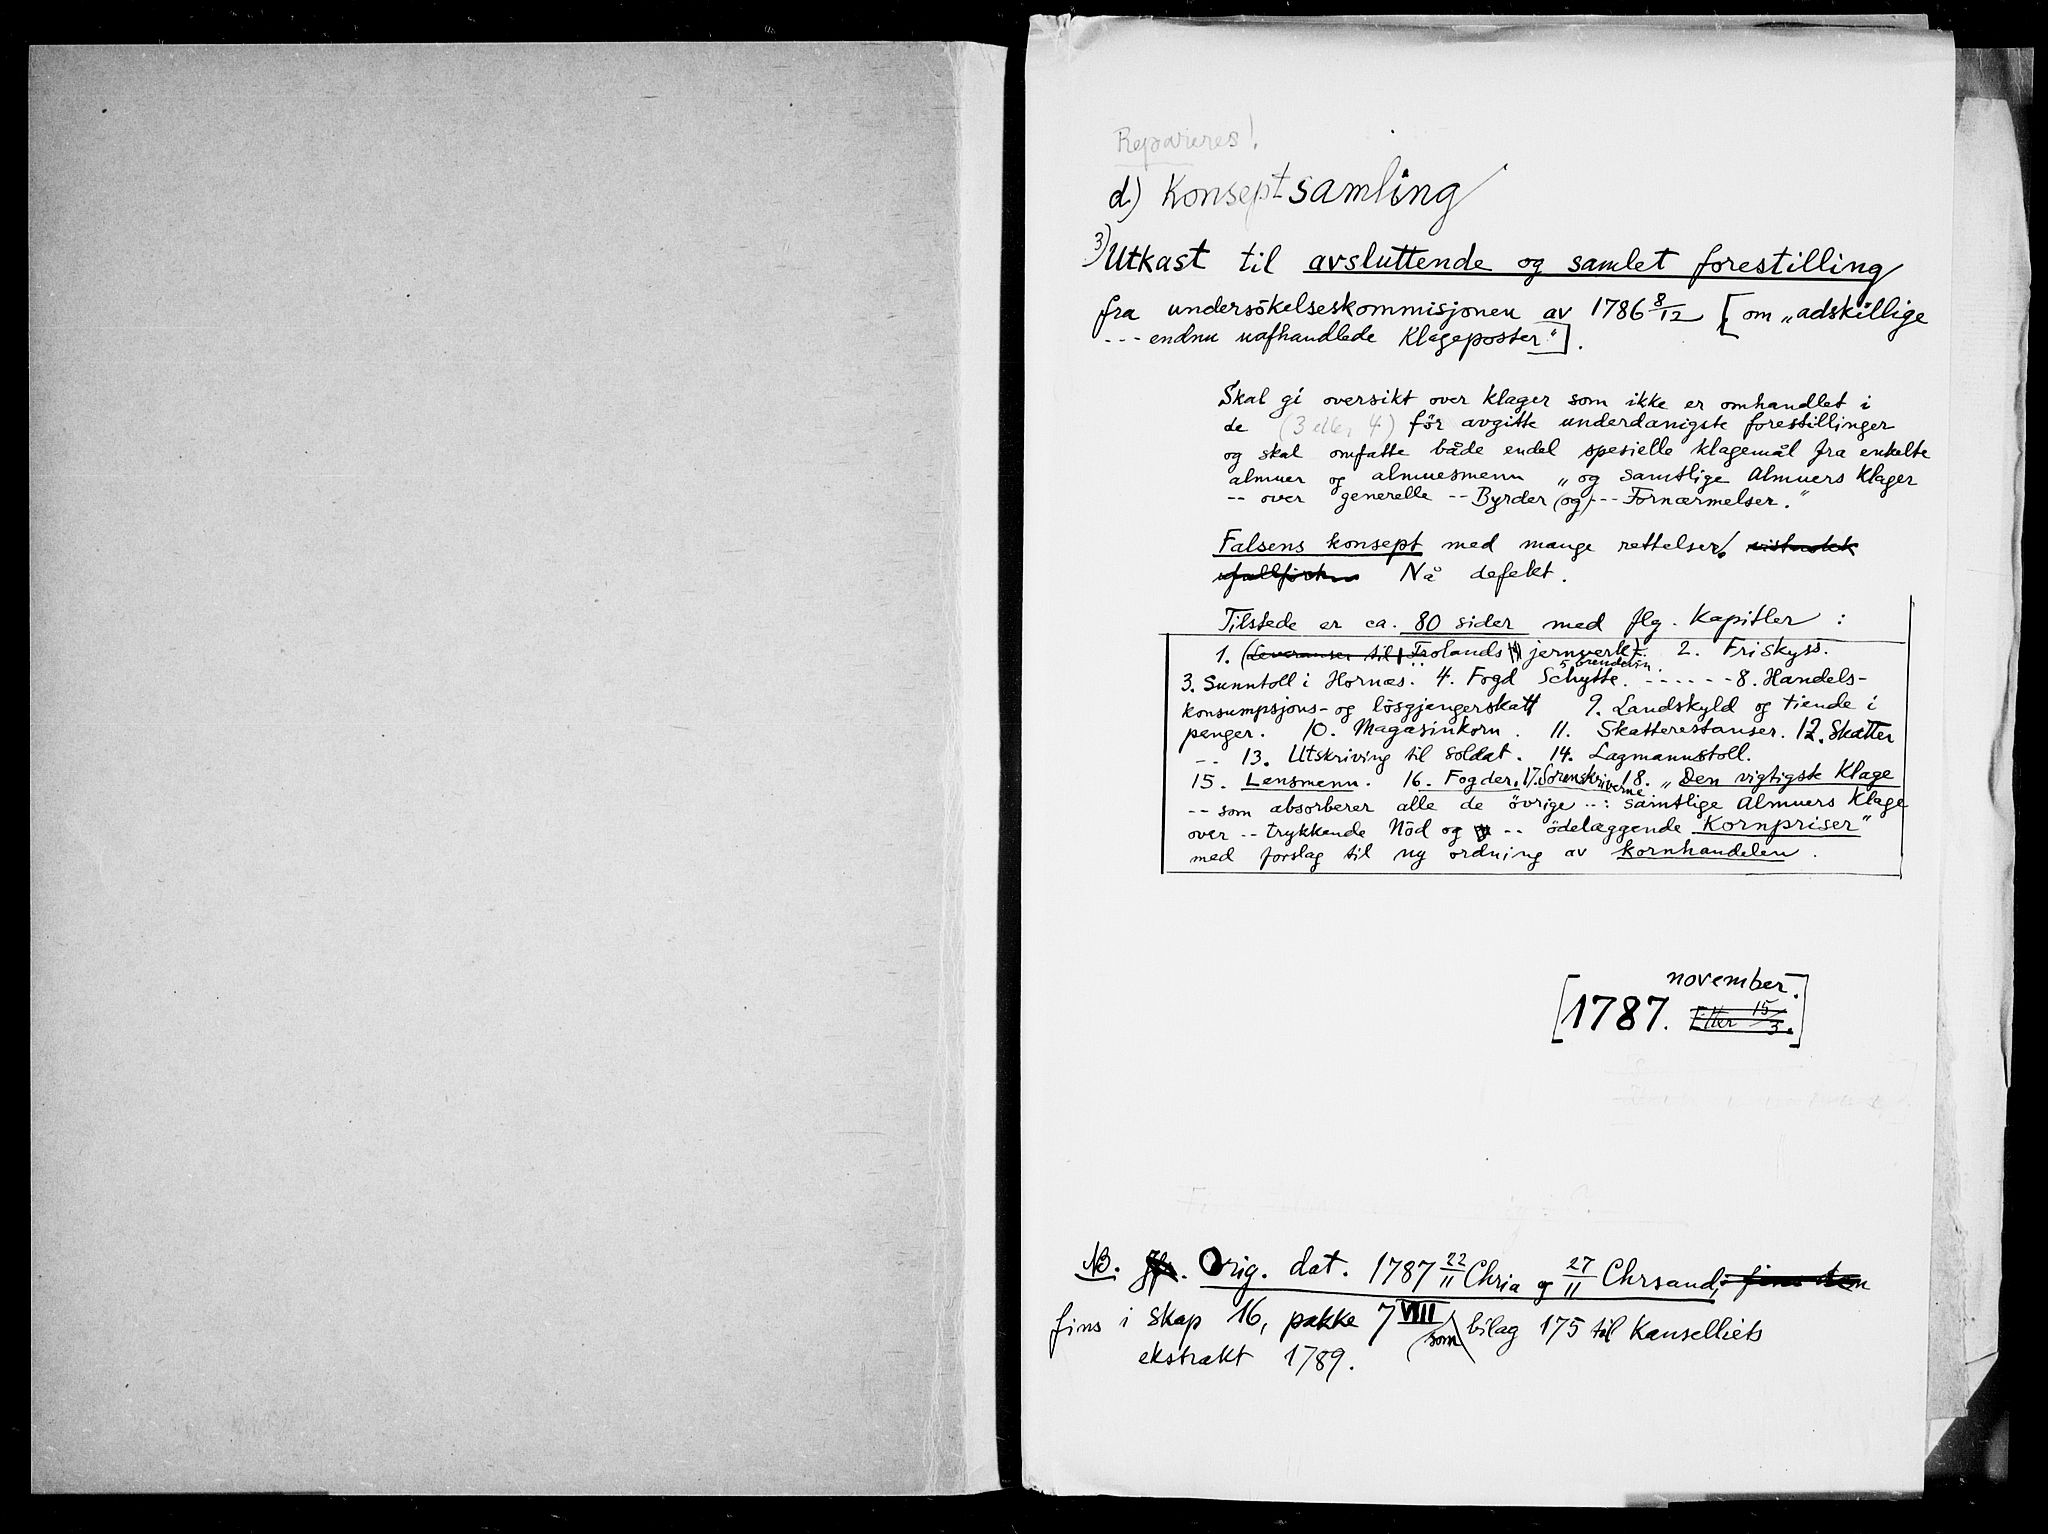 Repareres!
d) Konseptsamling
3) Utkast til avsluttende og samlet forestilling
fra undersökelseskommisjonen av 1786 8/12 [om „adskillige
--- endnu uafhandlede Klageposter“].
Skal gi oversikt over klager som ikke er omhandlet i
de (3 eller 4) för avgitte underdanigste forestillinger
og skal omfatte både endel spesielle klagemål fra enkelte
almuer og almuesmenn „og samtlige Almuers Klager
-- over generelle -- Byrder (og) --- Fornærmelser.“
Falsens konsept med mange rettelser.
Nå defekt.
Tilstede er ca. 80 sider med flg. kapitler :
1. (Leveranser til) Frolands jernverk. 2. Friskyss.
3. Sunntoll i Hornæs. 4. Fogd Schytte. 5 brendevin. ------ 8. Handels-
konsumpsjons- og lösgjengerskatt 9. Landskyld og tiende i
penger. 10. Magasinkorn. 11. Skatterestanser. 12. Skatter
-- 13. Utskriving til soldat. 14. Lagmannstoll.
15. Lensmenn. 16. Fogder. 17. Sorenskriverne. 18. „Den vigtigste Klage
-- som absorberer alle de övrige --: samtlige Almuers Klage
over -- trykkende Nöd og -- ödelæggende Kornpriser“
med forslag til ny ordning av kornhandelen.
november.
[1787. Etter 15/3.]
NB. Jfr. Orig. dat. 1787 22/11 Chria og 27/11 Chrsand,
fins i skap 16, pakke 7 VIII (som) bilag 175 til Kanselliets
ekstrakt 1789.